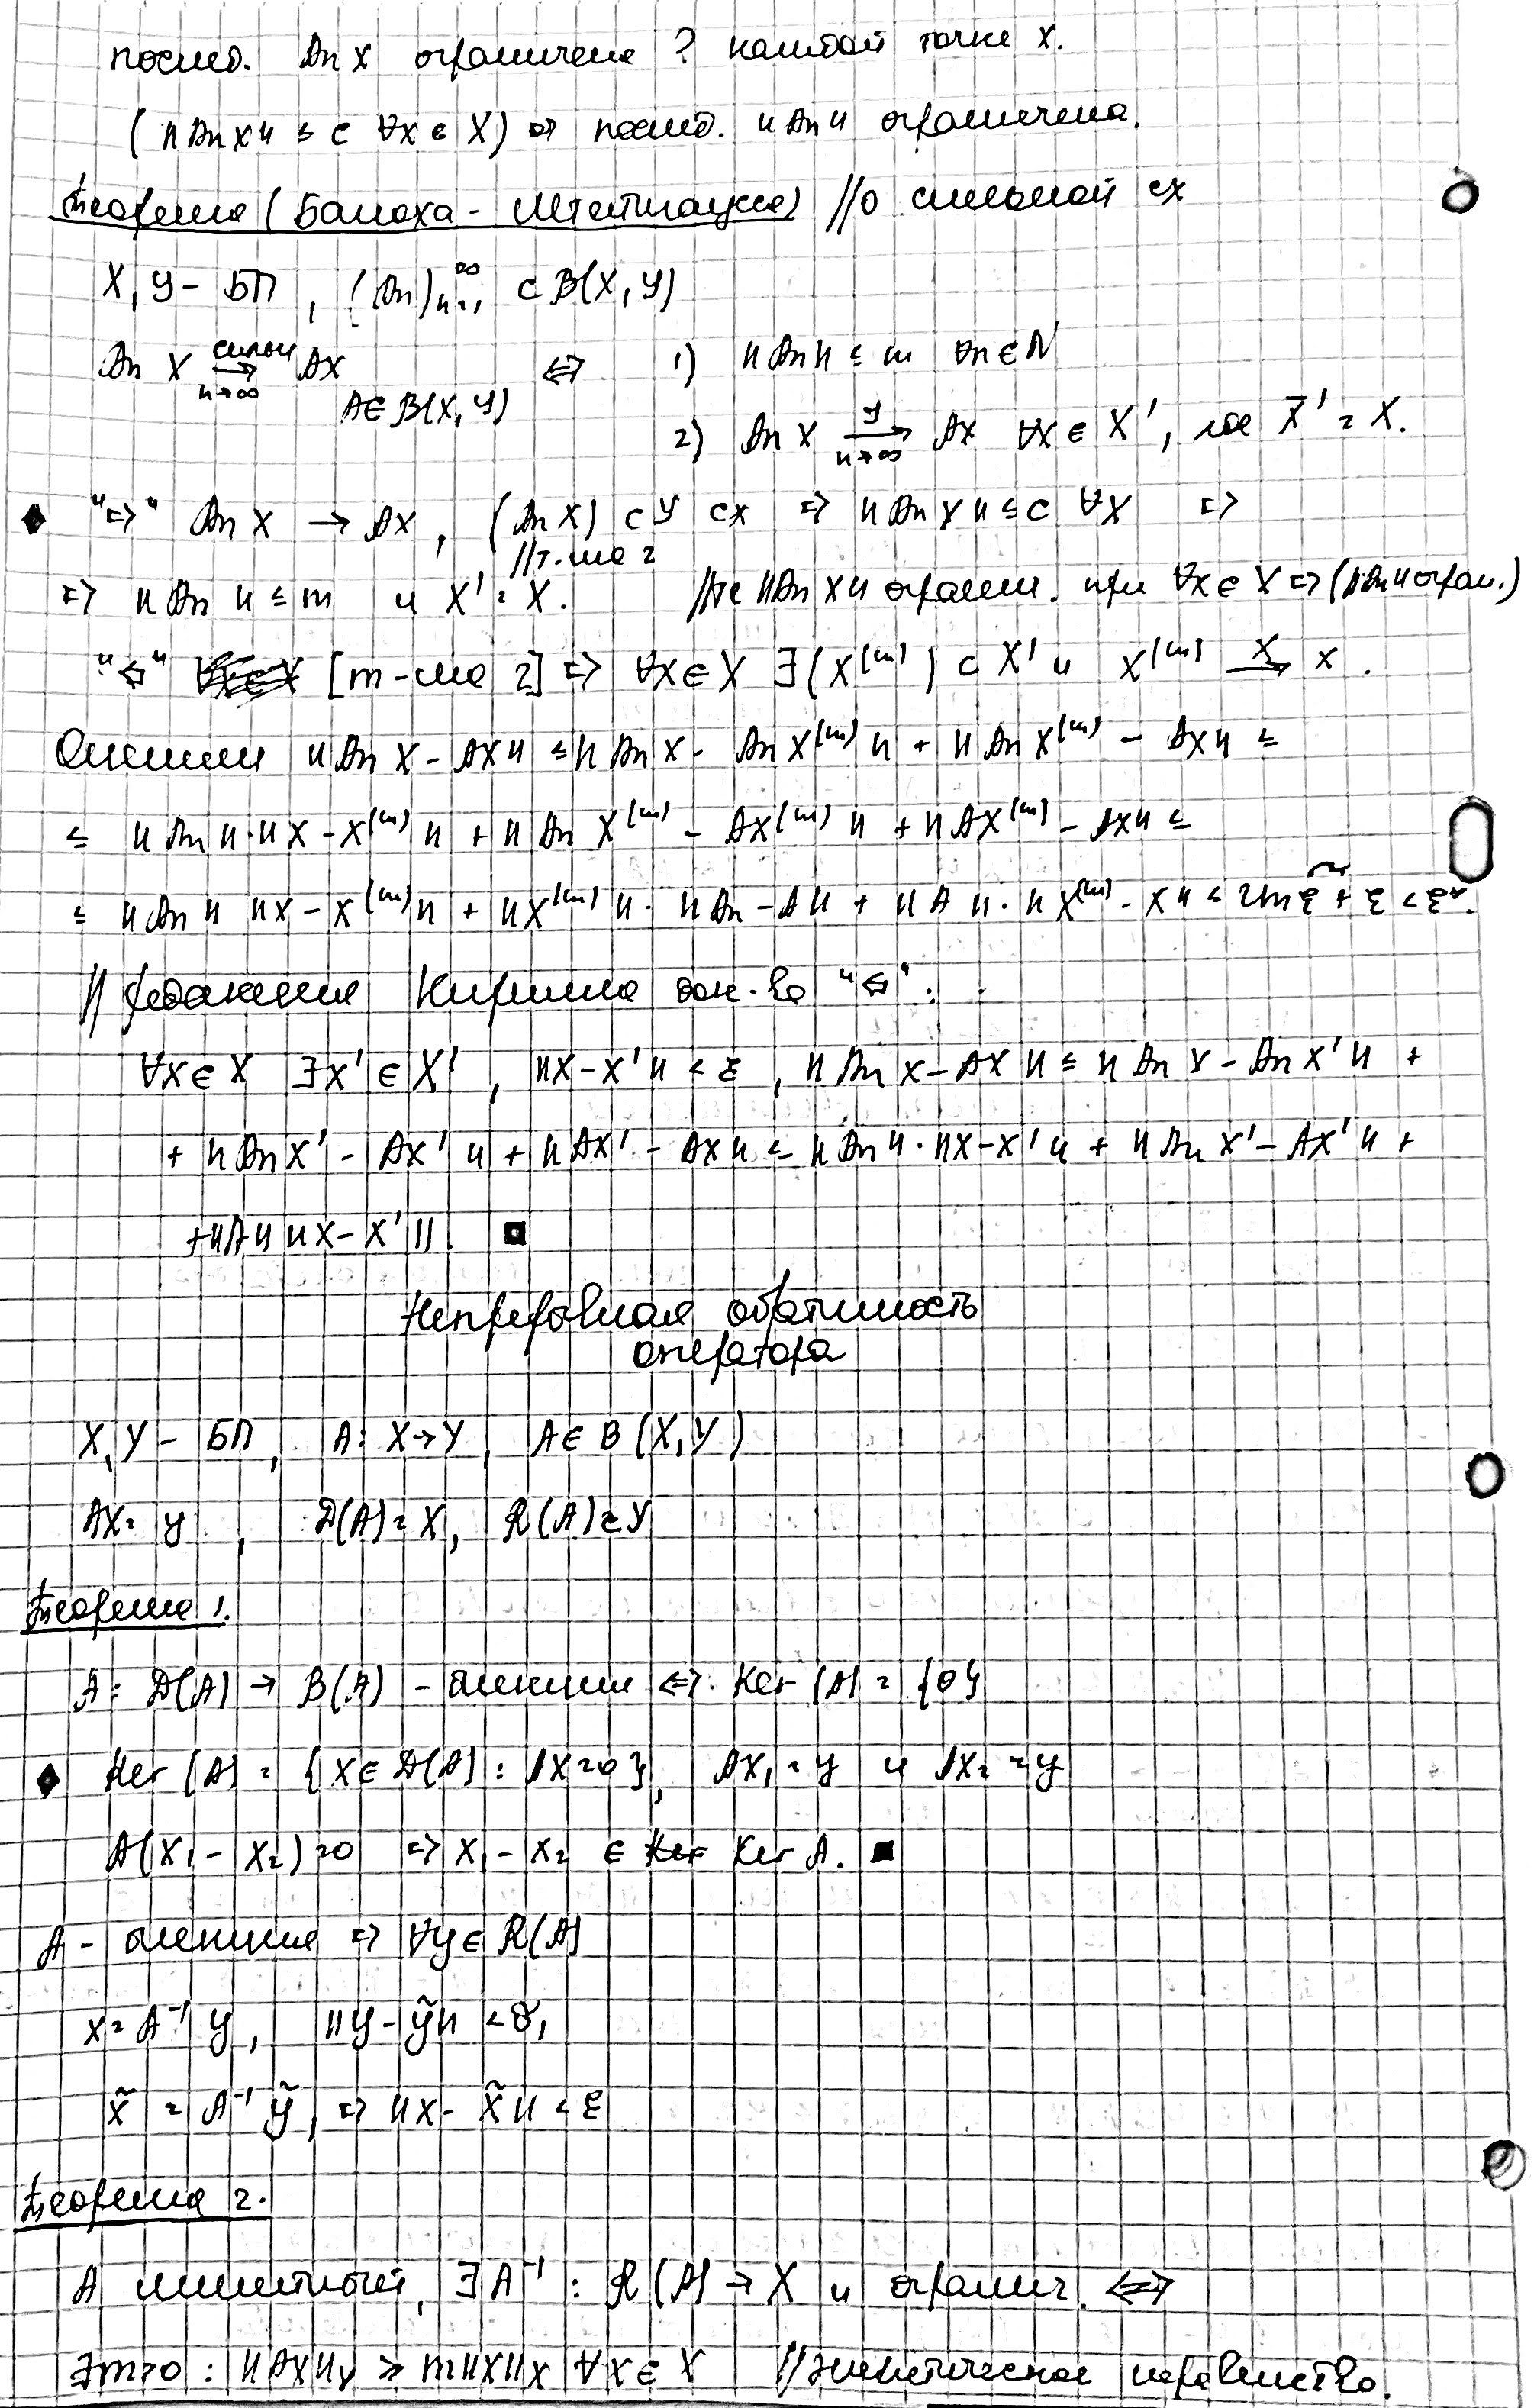 послед. Aₙx ограничена ? каждой точке x.
(‖Aₙx‖ ≤ c ∀x ∈ X) ⇒ послед. ‖Aₙ‖ ограничена.
Теорема (Банаха - Штейнгауса) // о сильной сх
X, Y - БП, (Aₙ)ₙ₌₁^∞ ⊂ B(X, Y)
Aₙx →(сильн, n→∞) Ax A ∈ B(X, Y) ⇔ 1) ‖Aₙ‖ ≤ m ∀n ∈ N
2) Aₙx →(Y, n→∞) Ax ∀x ∈ X', где X̄' = X.
"⇒" Aₙx → Ax, (Aₙx) ⊂ Y сх ⇒ ‖Aₙx‖ ≤ c ∀x ⇒
// т-ма 2
⇒ ‖Aₙ‖ ≤ m и X' = X. // те ‖Aₙx‖ огранич. при ∀x ∈ X ⇒ (‖Aₙ‖ огран.)
"⇐" [т-ма 2] ⇒ ∀x ∈ X ∃(x^(m)) ⊂ X' и x^(m) →(X) x.
Оценим ‖Aₙx - Ax‖ ≤ ‖Aₙx - Aₙx^(m)‖ + ‖Aₙx^(m) - Ax‖ ≤
≤ ‖Aₙ‖·‖x - x^(m)‖ + ‖Aₙx^(m) - Ax^(m)‖ + ‖Ax^(m) - Ax‖ ≤
≤ ‖Aₙ‖ ‖x - x^(m)‖ + ‖x^(m)‖·‖Aₙ - A‖ + ‖A‖·‖x^(m) - x‖ ≤
// редакция Кирилла док-во "⇐":
∀x ∈ X ∃x' ∈ X', ‖x - x'‖ < ε, ‖Aₙx - Ax‖ ≤ ‖Aₙx - Aₙx'‖ +
+ ‖Aₙx' - Ax'‖ + ‖Ax' - Ax‖ ≤ ‖Aₙ‖·‖x - x'‖ + ‖Aₙx' - Ax'‖ +
+ ‖A‖ ‖x - x'‖. ■
Непрерывная обратимость
оператора
X, Y - БП, A: X → Y, A ∈ B(X, Y)
Ax = y, D(A) = X, R(A) = Y
Теорема 1.
A: D(A) → B(A) - биекция ⇔ Ker(A) = {0}
Ker(A) = {x ∈ D(A): Ax = 0}, Ax₁ = y и Ax₂ = y
A(x₁ - x₂) = 0 ⇒ x₁ - x₂ ∈ Ker A. ■
A - биекция ⇒ ∀y ∈ R(A)
x = A⁻¹y, ‖y - ỹ‖ < δ,
x̃ = A⁻¹ỹ, ⇒ ‖x - x̃‖ < ε
Теорема 2.
A линейный, ∃A⁻¹: R(A) → X и огранич. ⇔
∃m>0: ‖Ax‖_Y ≥ m‖x‖_X ∀x ∈ X // энергетическое неравенство.